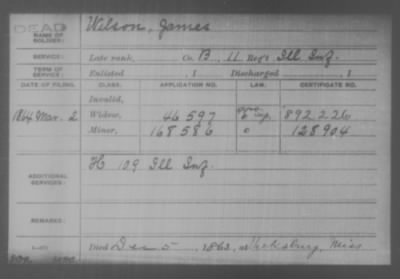 DEAD
NAME OF SOLDIER: Wilson, James
SERVICE: Late rank, Co. B, 11 Reg't Ill Inf.
TERM OF SERVICE: Enlisted , 1 Discharged , 1
DATE OF FILING. CLASS. APPLICATION NO. LAW. CERTIFICATE NO.
Invalid,
1864 Mar. 2 Widow, 46 597 892 226
Minor, 168 586 128 904
ADDITIONAL SERVICES: H 109 Ill Inf.
REMARKS:
Died Dec 5, 1863, at Vicksburg, Miss